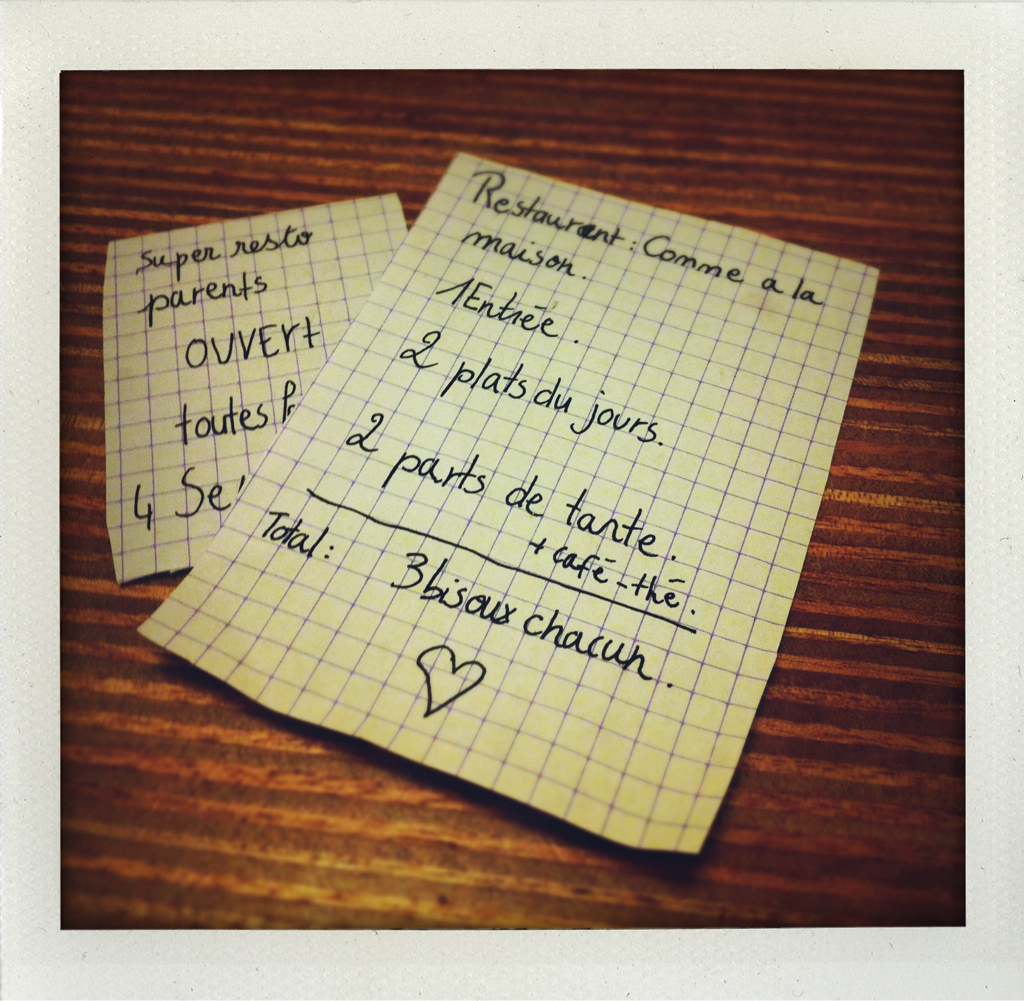 super resto
parents
OUVERt
toutes
4
Restaurant : Comme a la
maison.
1Entrée.
2 plats du jours.
2 parts de tante.
+ café - thé.
Total: 3bisoux chacun.